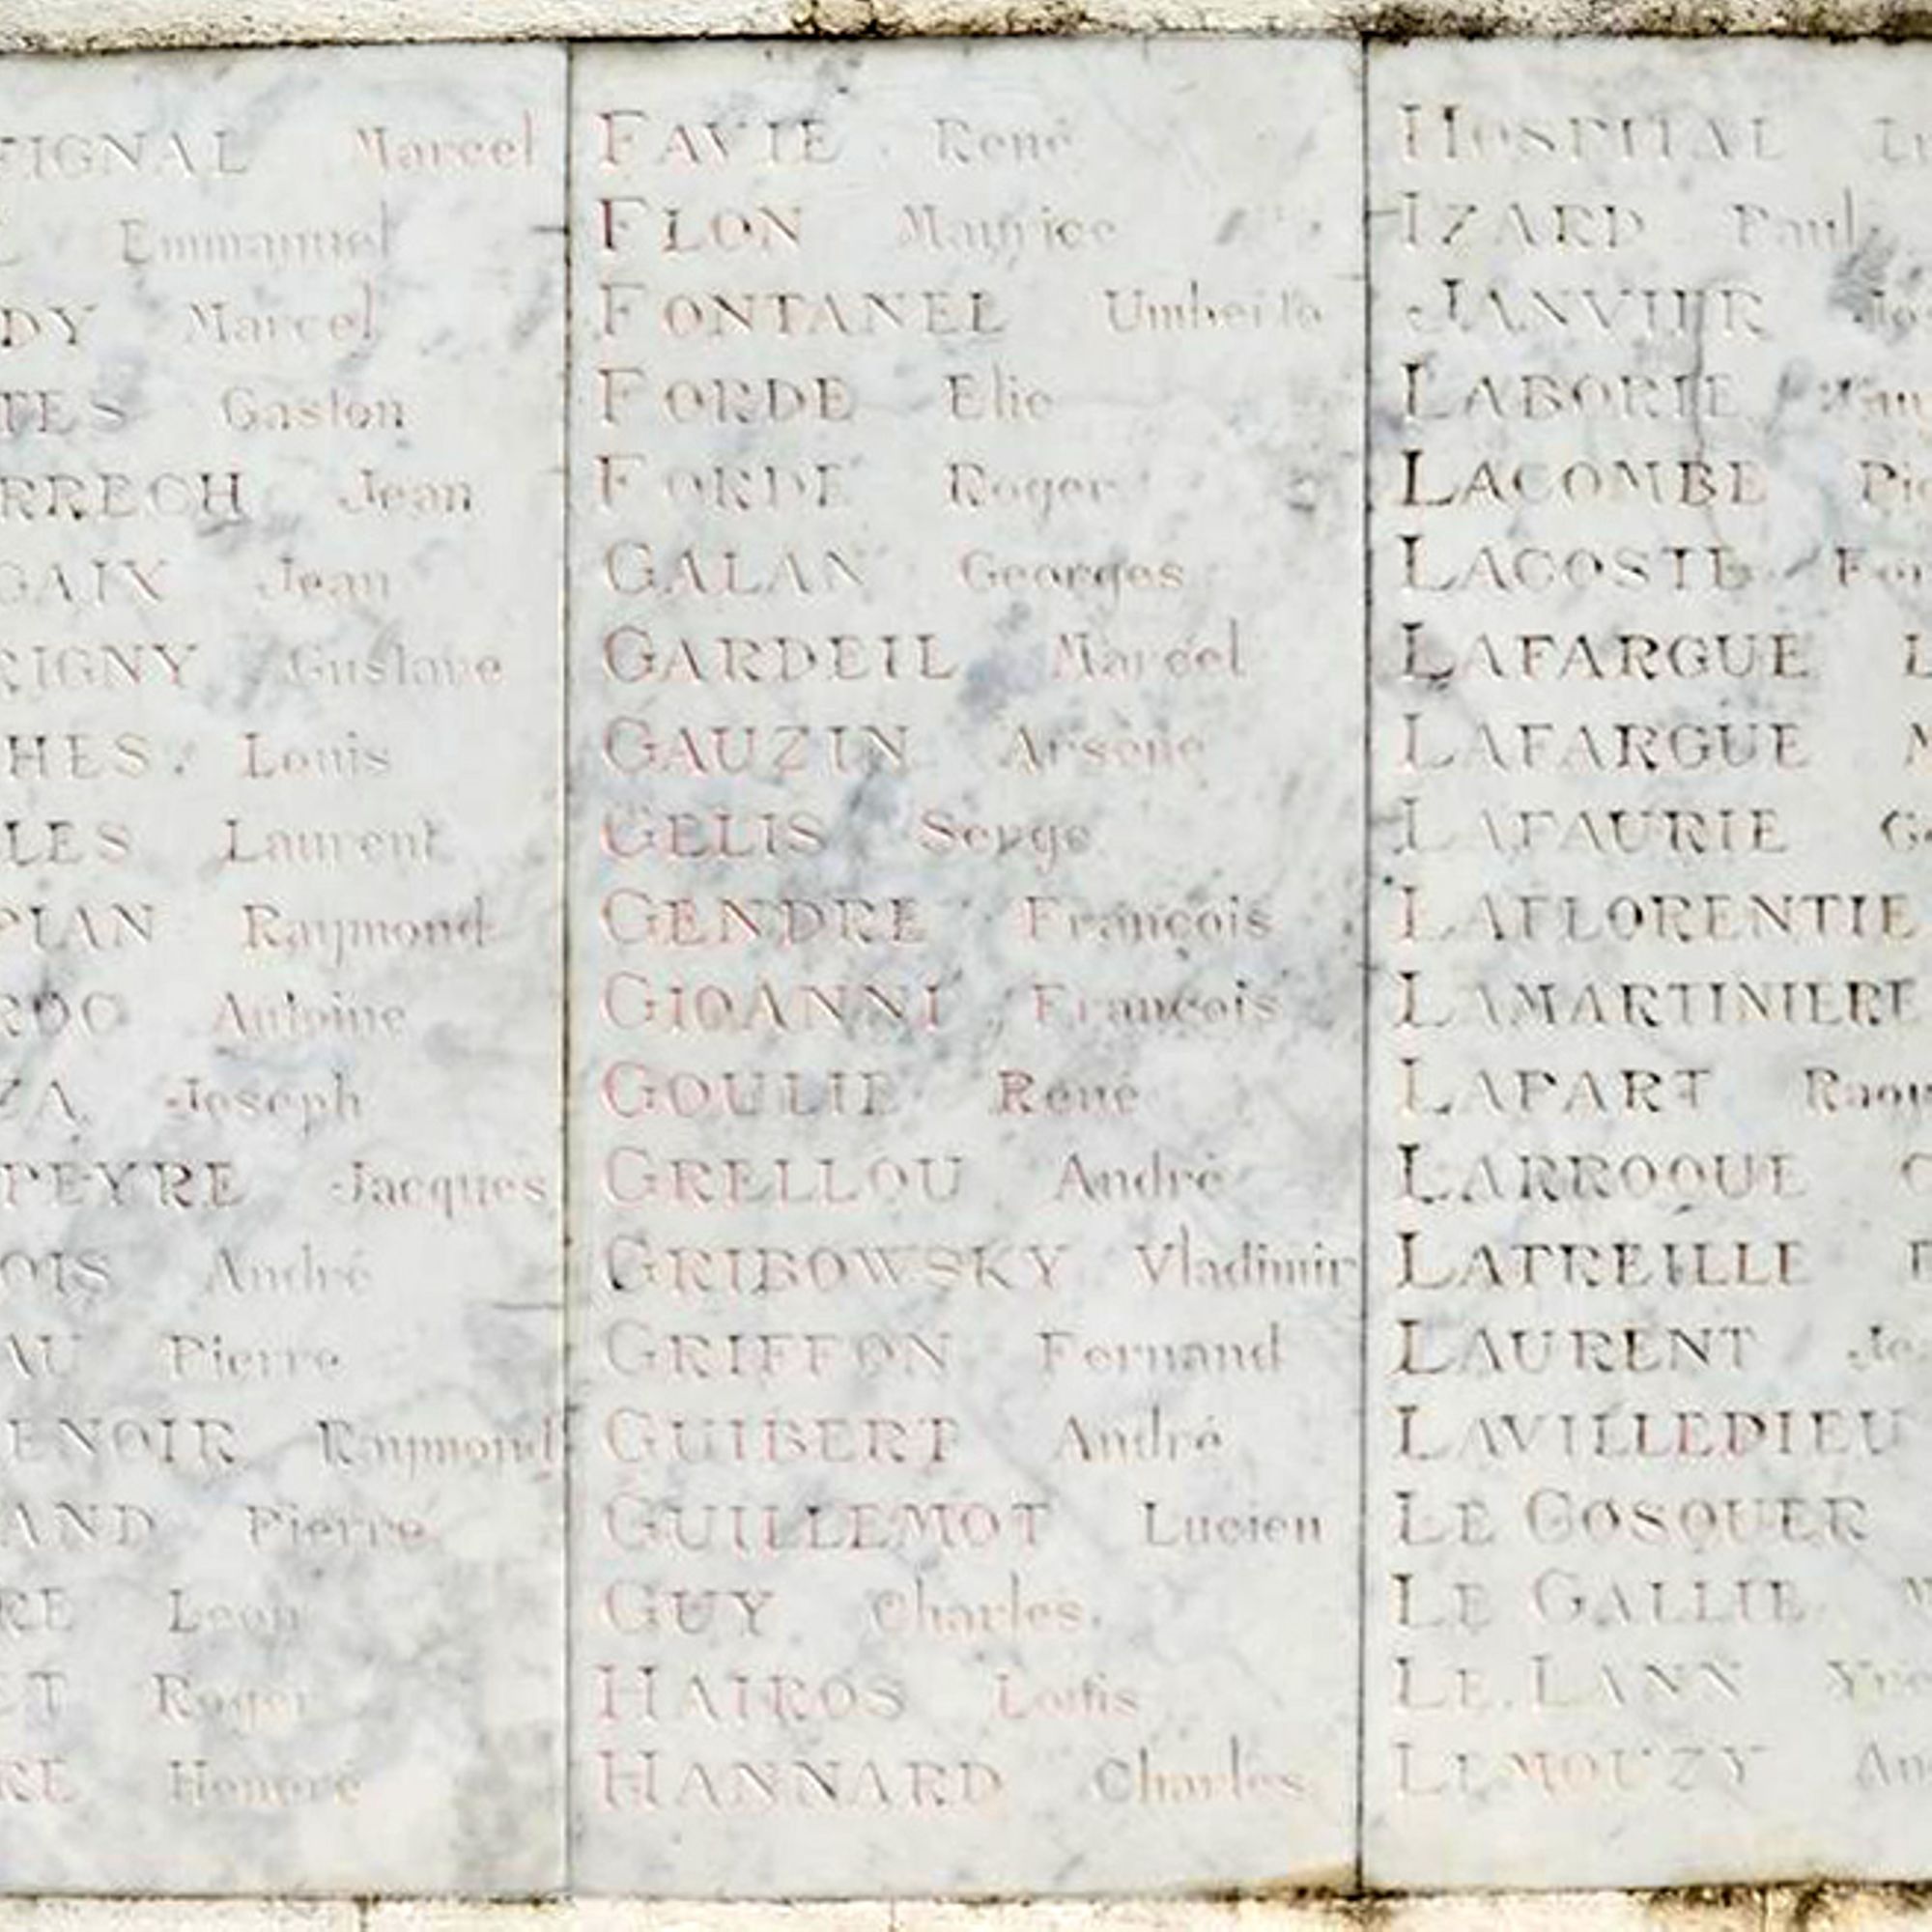 FIGNAL Marcel
Emmanuel
DY Marcel
TES Gaston
RRECH Jean
GAIX Jean
RIGNY Gustave
HES Louis
LES Laurent
PIAN Raymond
ROC Antoine
ZA Joseph
PEYRE Jacques
OIS André
AU Pierre
ENOIR Raymond
AND Pierre
RE Leon
ET Roger
RE Honoré
FAVIE René
FLON Maurice
FONTANEL Umberto
FORDE Elie
FORDE Roger
GALAN Georges
GARDEIL Marcel
GAUZIN Arsène
GELIS Serge
GENDRE François
GIOANNI François
GOULIE René
GRELLOU André
GRIBOWSKY Vladimir
GRIFFON Fernand
GUIBERT André
GUILLEMOT Lucien
GUY Charles
HAIROS Louis
HANNARD Charles
HOSPITAL
IZARD Paul
JANVIER
LABORIE
LACOMBE Pie
LACOSTE
LAFARGUE L
LAFARGUE M
LAFAURIE G
LAFLORENTIE
LAMARTINIERE
LAPART Raou
LARROQUE
LATREILLE
LAURENT
LAVILLEDIEU
LE COSQUER
LE GALLIE
LE LANN
LEMOUZY An